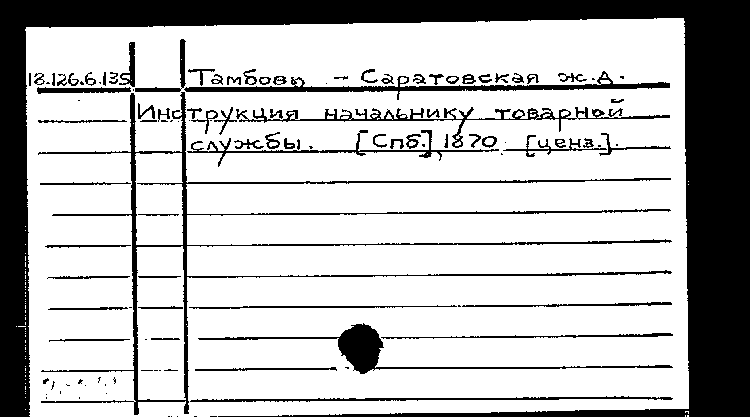 18.126.6.135 Тамбово - Саратовская ж.д.
Инструкция начальнику товарной
службы. [Спб.], 1870 [ценз.].